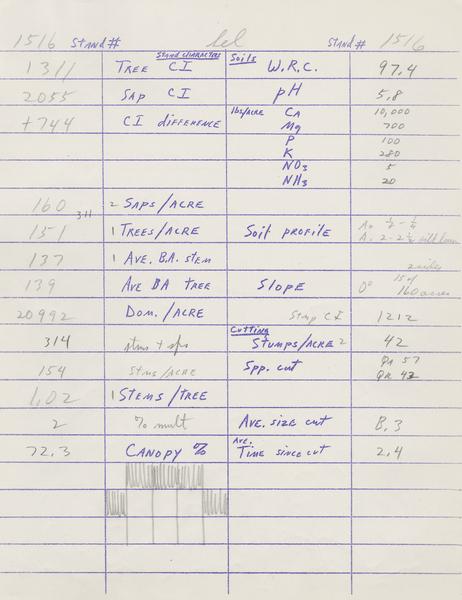 1516 Stand # Stand # 1516
Stand Characters Soils
1311 Tree CI W.R.C. 97.4
2055 Sap CI pH 5.8
+744 CI difference lbs/acre Ca 10,000
Mg 700
P 100
K 280
NO3 5
NH3 20
160 2 Saps/Acre
311
151 1 Trees/Acre Soil profile A0 1/2 - 1/4
A1 2-2 1/2
137 1 Ave. B.A. stem
139 Ave BA tree Slope 0° 15 of
160 acres
20992 Dom./Acre Stmp CI 1212
Cutting
314 stms + sps Stumps/Acre 2 42
154 Stms/Acre Spp. cut Qa 57
Qr 43
1.02 1 Stems/Tree
2 % mult Ave. size cut 8.3
72.3 Canopy % Ave. Time since cut 2.4